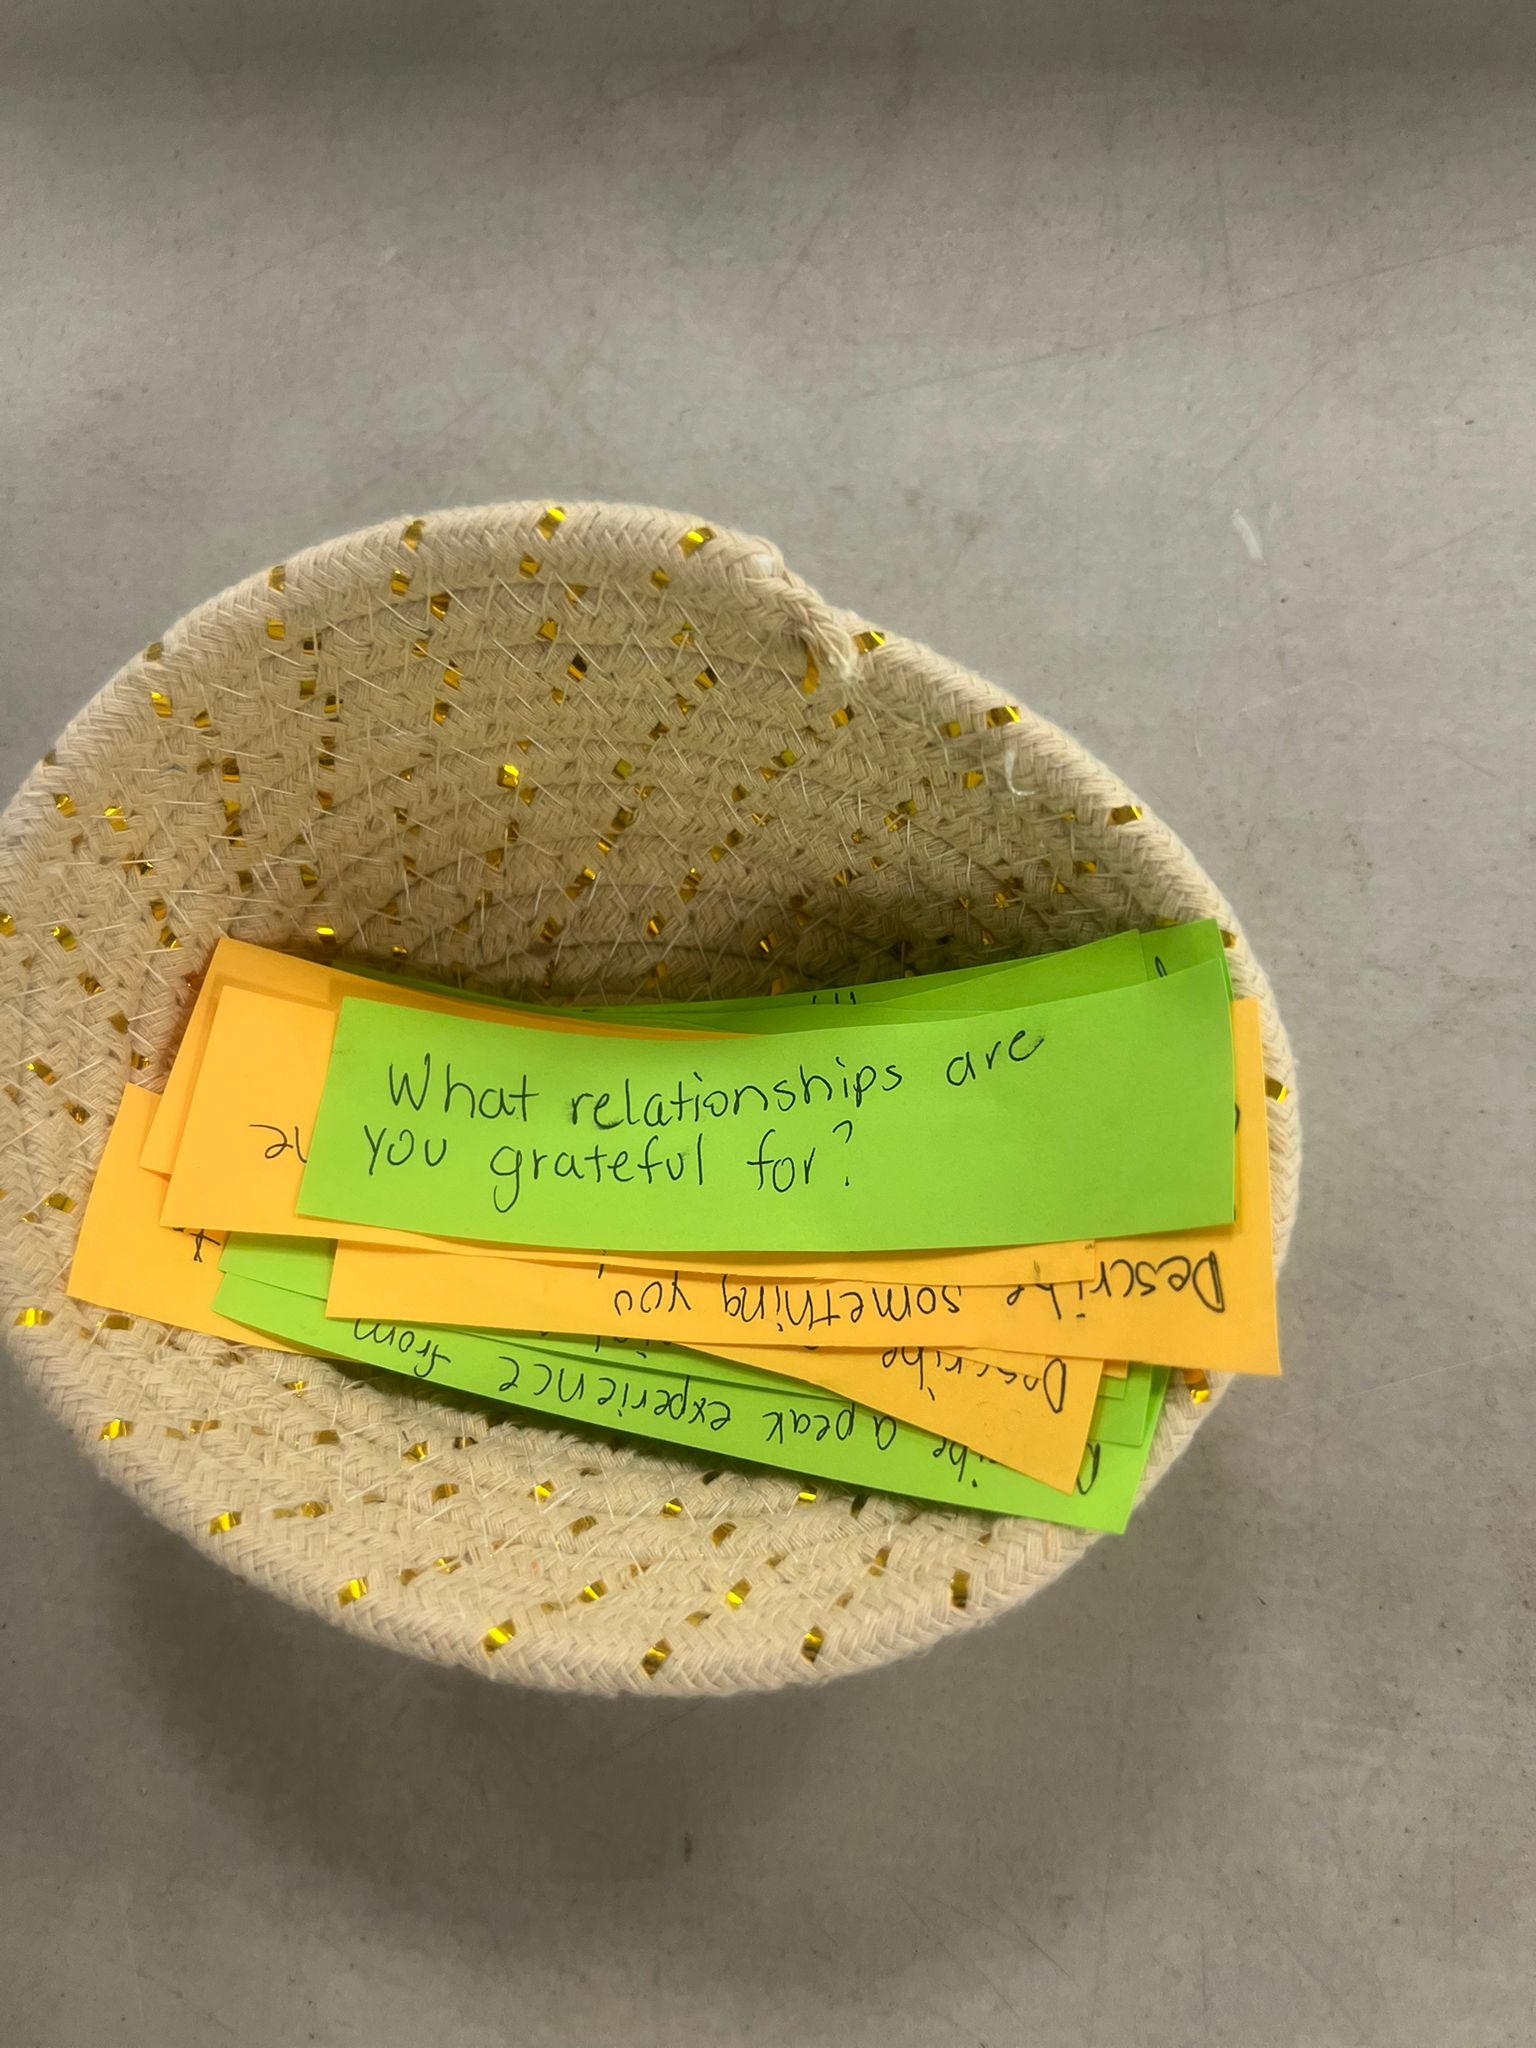 What relationships are
you grateful for?
Describe something you
Describe
a peak experience from